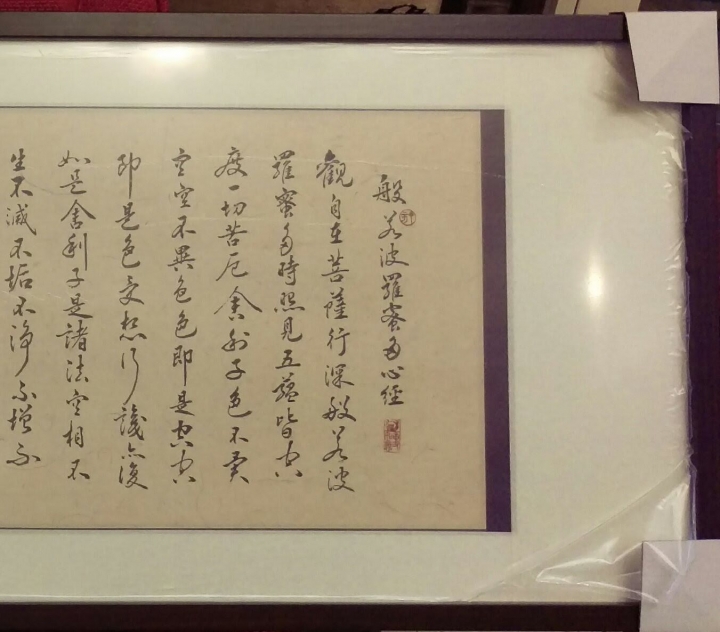 般若波羅蜜多心經
觀自在菩薩行深般若波
羅蜜多時照見五蘊皆空
度一切苦厄舍利子色不異
空空不異色色即是空空
即是色受想行識亦復
如是舍利子是諸法空相不
生不滅不垢不淨不增不